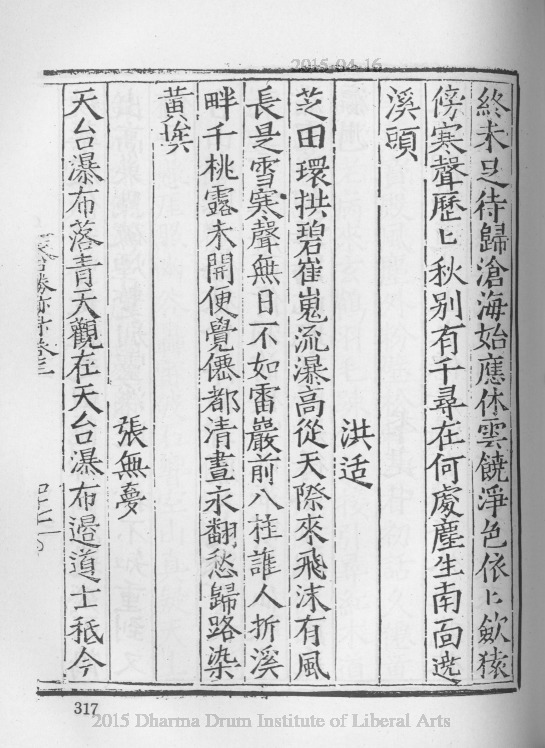 2015-04-16
終未足待歸滄海始應休雲饒淨色依〻歛猿
傍寒聲歷〻秋別有千尋在何處塵生南面
溪頭
洪适
芝田環拱碧崔嵬流瀑高從天際來飛沫有風
長是雪寒聲無日不如雷巖前八桂誰人折溪
畔千桃露未開便覺僊都清晝永翻愁歸路染
黃埃
張無夢
天台瀑布落青大觀在天台瀑布邉道士秪今
317
2015 Dharma Drum Institute of Liberal Arts